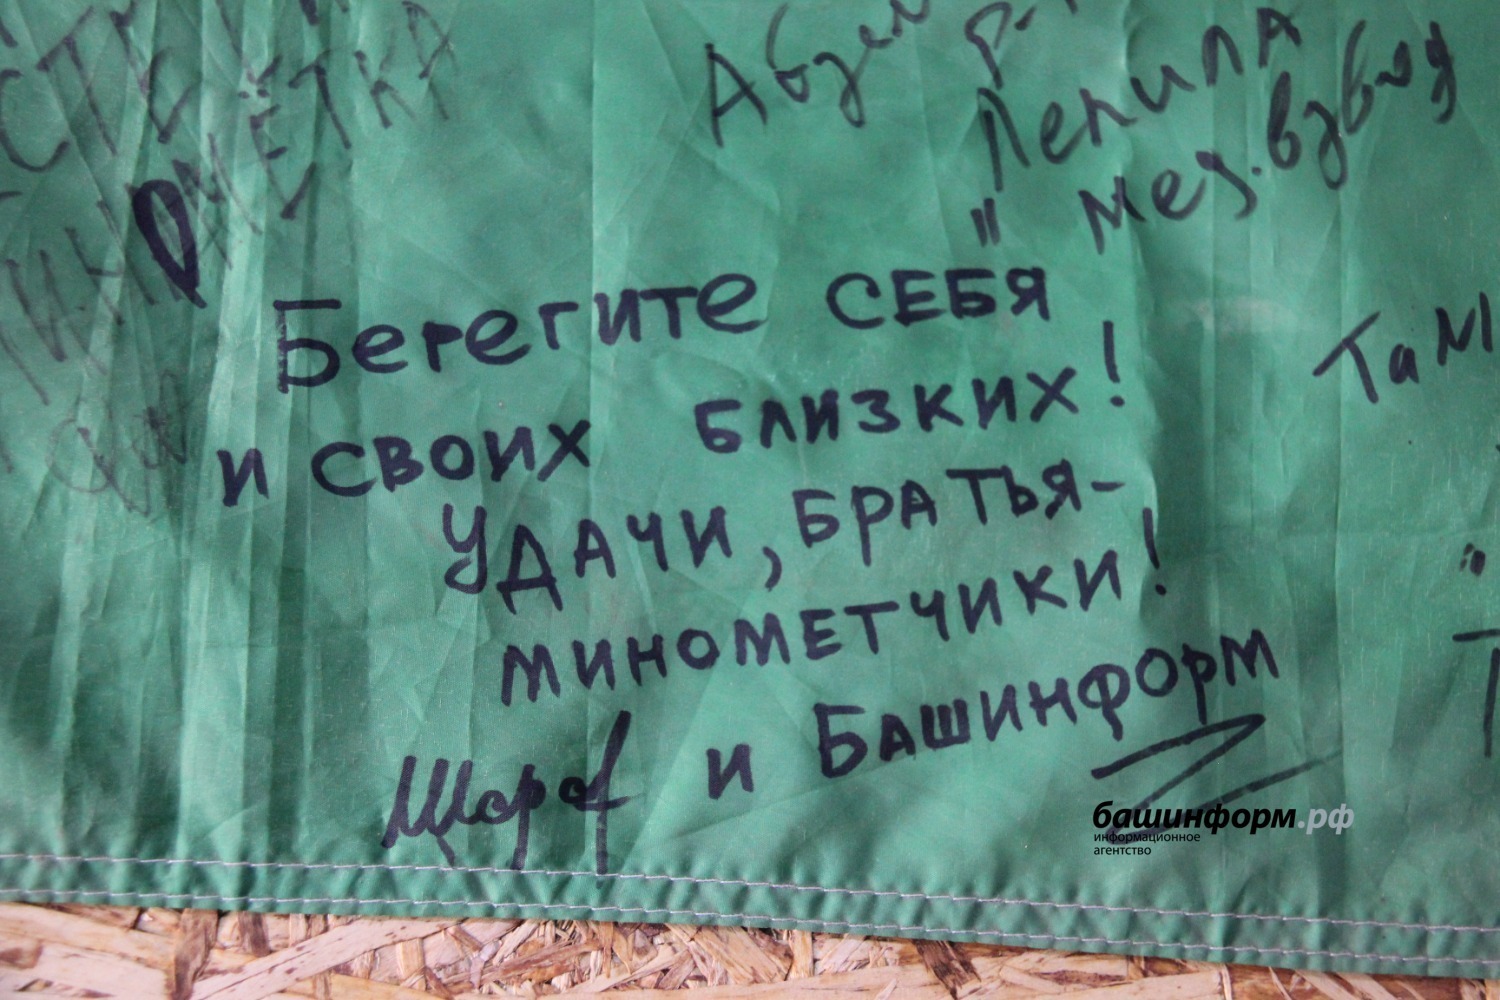 МЕТКА
Лепила
мед. взвод
Берегите СЕБЯ
и своих близких!
УДАЧИ, БРАТЬЯ-
МИНОМЕТЧИКИ!
и Башинформ
Там
башинформ.рф
информационное
агентство